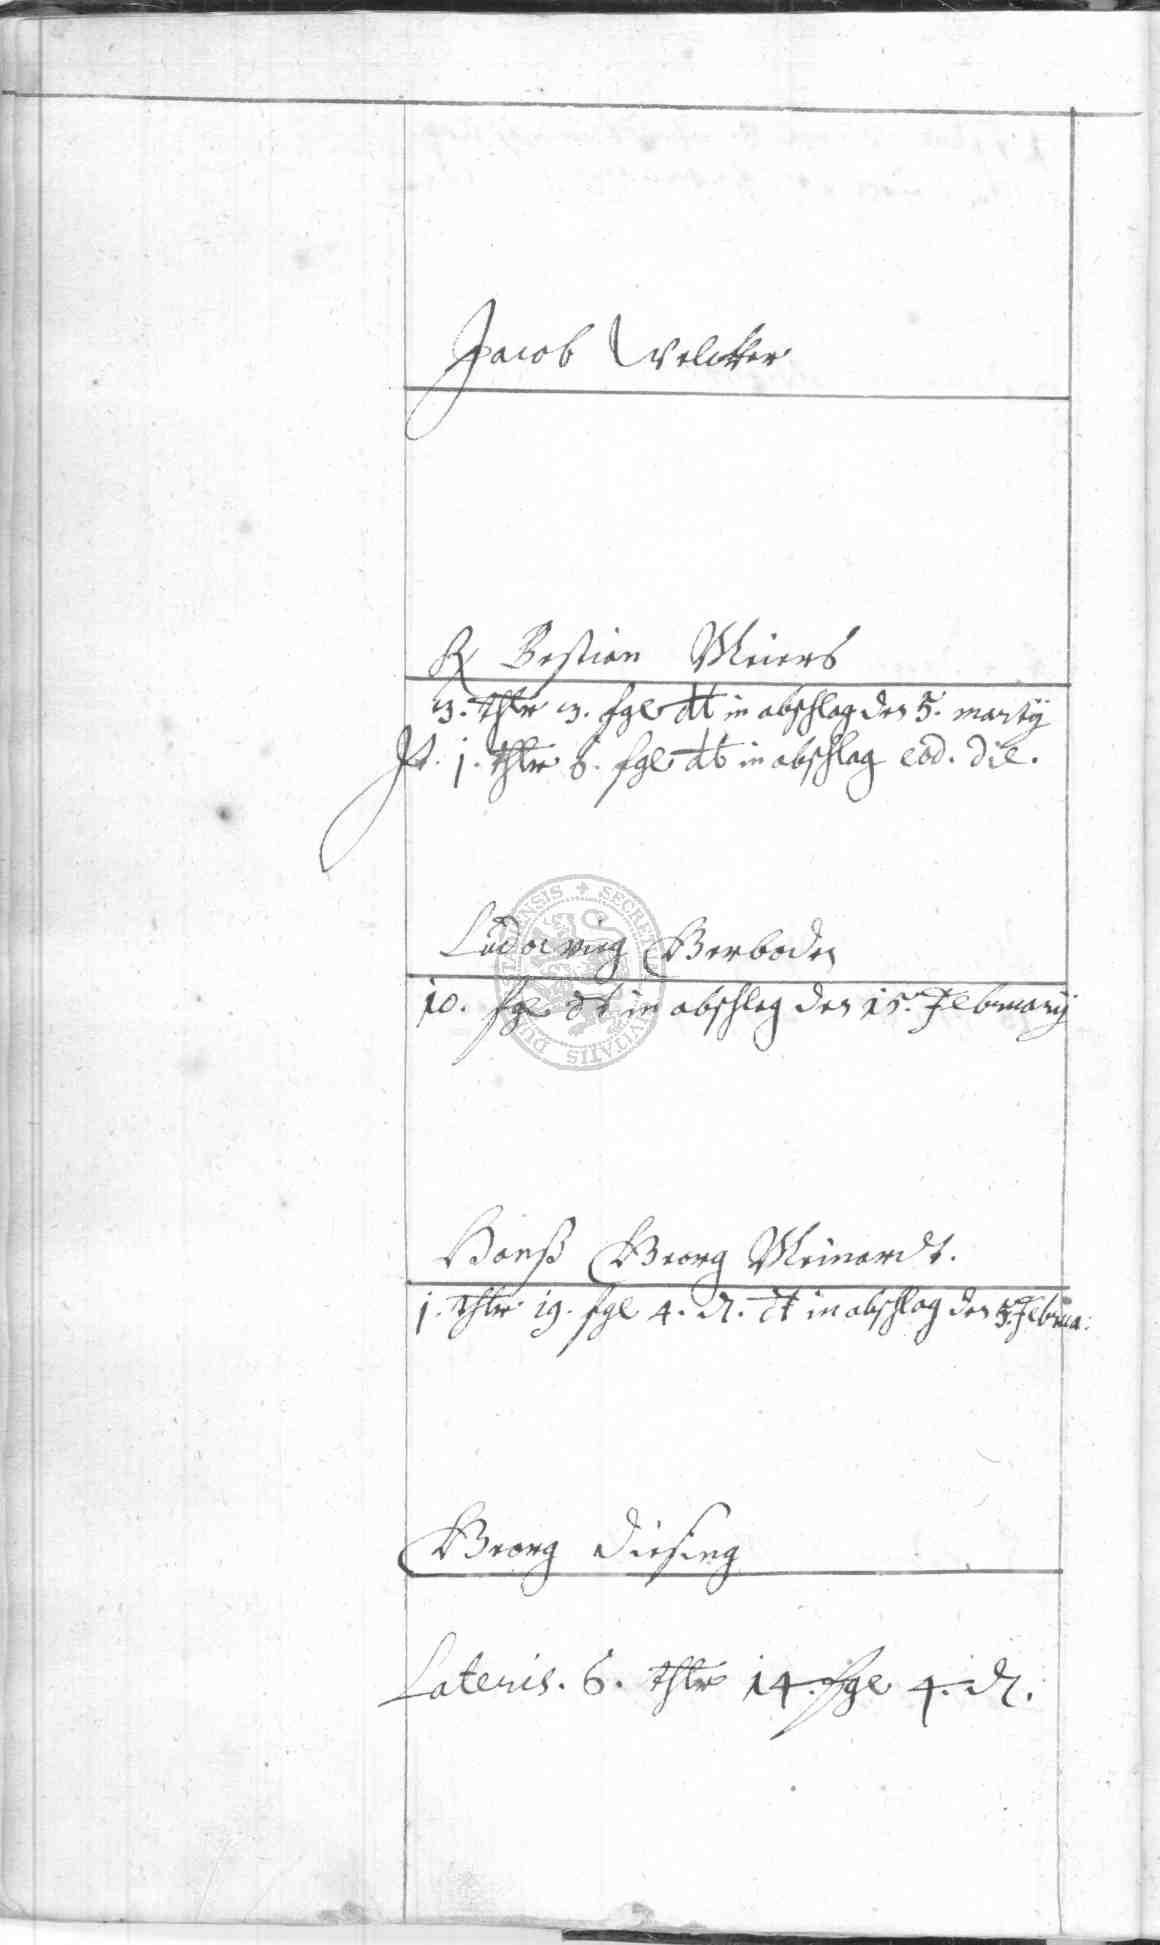 Jacob Welcker
R Bestian Meiers
3. thlr 3. sgl dt in abschlag den 5. martij
It. 1. thlr 6. sgl dt in abschlag eod. die.
Ludowieg Gerboden
10. sgl dt in abschlag den 15. Februarij
Hanß Georg Meinardt.
1. thlr 19. sgl 4. d. dt in abschlag den 5. Februa:
Georg Diesing
Lateris. 6. thlr 14. sgl 4. d.
SECRET CIVITATIS DU